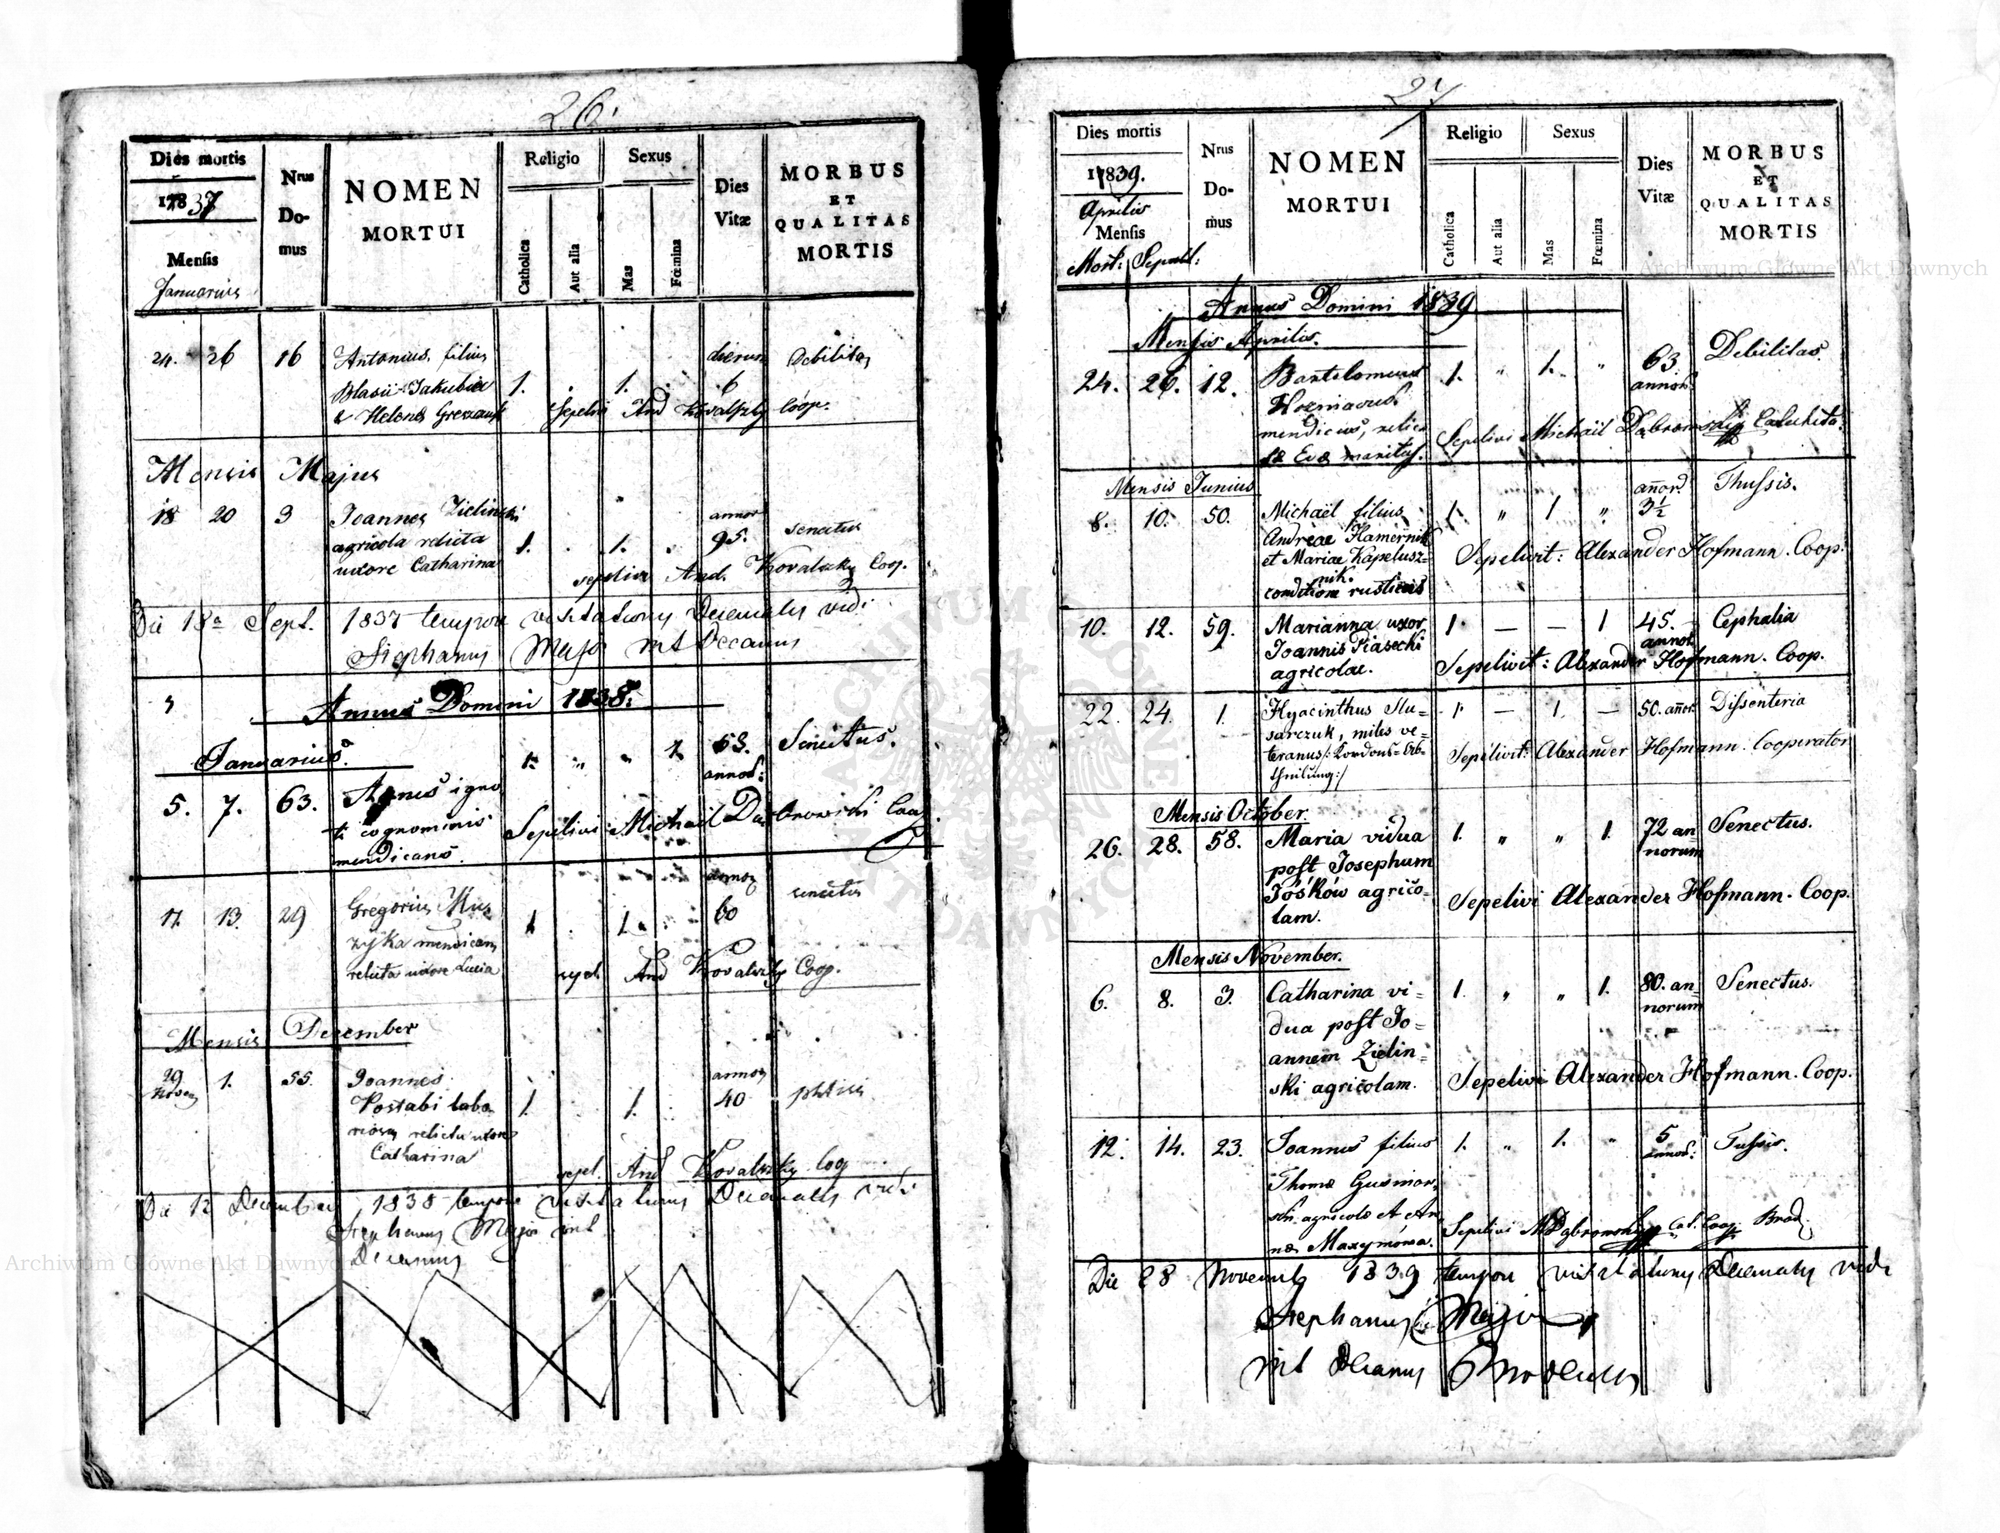 26.
Dies mortis
1837
Mensis
Januarius
Nrus
Do-
mus
NOMEN
MORTUI
Religio
Catholica
Aut alia
Sexus
Mas
Fœmina
Dies
Vitæ
MORBUS
ET
QUALITAS
MORTIS
24. 26 16 Antonius filius dierum Debilitas
Blasii Jakubiec 1. . 1. . 6
& Helenæ Sepelivi And Kovalszky Coop.
Mensis Majus
18 20 9 Joannes Zielinski annor
agricola relicta 1. . 1. . 95. senectus
uxore Catharina sepelivi And. Kovalszky Coop.
Die 18a Sept. 1837 tempore visitationis Decanalis vidi
Stephanus Major mt Decanus
Annus Domini 1838.
Januarius.
5. 7. 63. Agnes igno 1. " " 1. 63. annor: Senectus.
ti cognominis Sepelivi Michael Dąbrowski Coop.
mendicans.
11. 13. 29 Gregorius annor senectus
mendicans 1 . 1. 60
relicta uxore Lucia sepel. And Kovalszky Coop.
Mensis December
29 1. 55. Joannes annor
Novem Postabi labo 1. 1. 40 phtisis
riosus relicta uxore
Catharina
sepel. And Kovalszky Coop
Die 12 Decembris 1838 tempore visitationis Decanalis vidi
Stephanus Major mt
Decanus
27
Dies mortis
1839.
Aprilis
Mensis
Mort: Sepult:
Nrus
Do-
mus
NOMEN
MORTUI
Religio
Catholica
Aut alia
Sexus
Mas
Fœmina
Dies
Vitæ
MORBUS
ET
QUALITAS
MORTIS
Annus Domini 1839
Mensis Aprilis.
24. 26. 12. Bartolomeus 1. " 1. " 63. annor: Debilitas.
mendicus, relic
tæ Evæ maritus. Sepelivi Michail Dąbrowski Catechista.
Mensis Junius
8. 10. 50. Michaël filius 1. " 1 " annor. 3½ Thussis.
Andreae Hamernik
et Mariae Kapelusz=
nik. Sepelivit: Alexander Hofmann. Coop:
conditione rusticus
10. 12. 59. Marianna uxor 1. — — 1 45. annor. Cephalia
Joannis Piasecki
agricolae. Sepelivit: Alexander Hofmann. Coop.
22. 24. 1. Hyacinthus Slu= 1. — 1. — 50. añor. Dissenteria
sarczuk, miles ve=
teranus/: Kordons=Ab= Sepelivit: Alexander Hofmann. Cooperator
theilung:/
Mensis October.
26. 28. 58. Maria vidua 1. " " 1. 72 an Senectus.
post Josephum norum
Jośków agrico=
lam. Sepelivi Alexander Hofmann. Coop.
Mensis November.
6. 8. 3. Catharina vi= 1. " " 1. 80. an Senectus.
dua post Jo= norum
annem Zielin=
ski agricolam. Sepelivi Alexander Hofmann. Coop.
12. 14. 23. Joannes filius 1. " 1. " 5 annor: Tussis.
Thomæ
agricolæ et An
næ Maxymówa. Sepelivi M Dąbrowski Cat. Coop. Brod.
Die 28 Novembris 1839 tempore visitationis Decanalis vidi
Stephanus Major
mt Decanus Brodensis
Archiwum Główne Akt Dawnych
Archiwum Główne Akt Dawnych
ARCHIWUM GŁÓWNE
AKT DAWNYCH